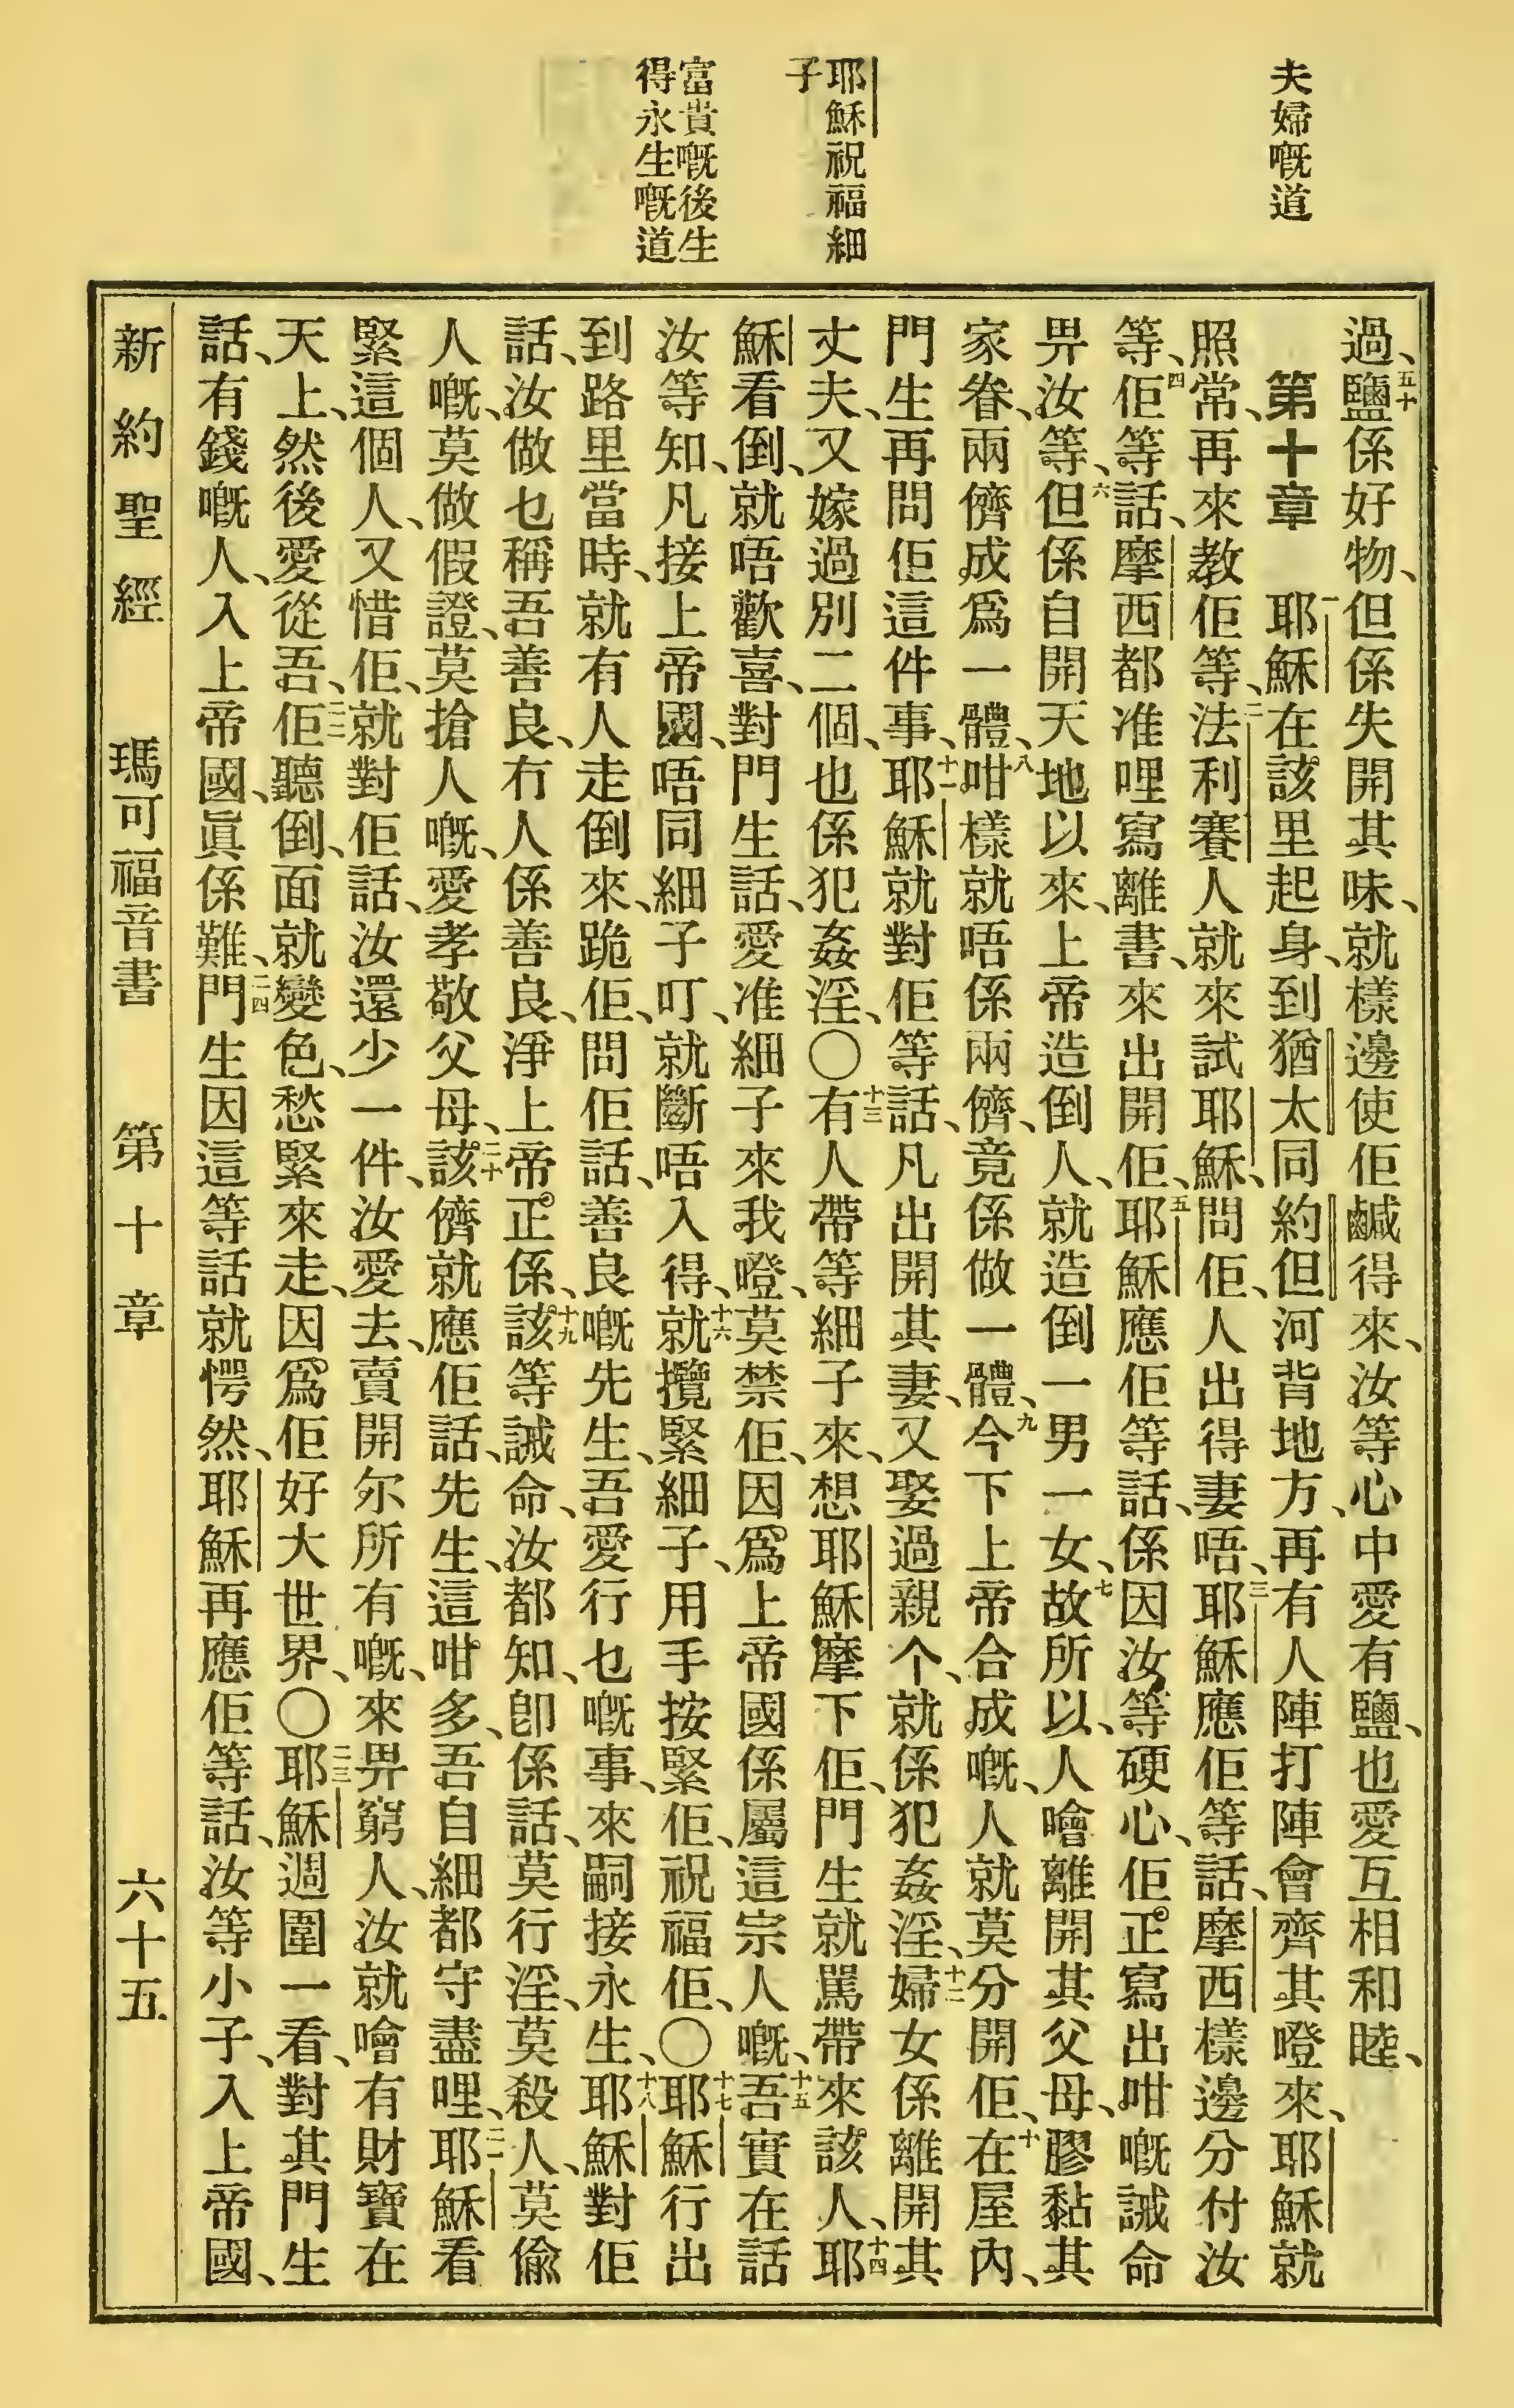 夫婦嘅道
耶穌祝福細
子
富貴嘅後生
得永生嘅道
過、五十鹽係好物、但係失開其味、就樣邊使佢鹹得來、汝等心中愛有鹽、也愛互相和睦、
第十章　一耶穌在該里起身、到猶太同約但河背地方、再有人陣打陣會齊其嶝來、耶穌就
照常、再來教佢等、二法利賽人就來試耶穌、問佢、人出得妻唔、三耶穌應佢等話、摩西樣邊分付汝
等、四佢等話、摩西都准哩寫離書、來出開佢、五耶穌應佢等話、係因汝等硬心、佢正寫出咁嘅誡命
畀汝等、六但係自開天地以來、上帝造倒人、就造倒一男一女、七故所以、人噲離開其父母、膠黏其
家眷、兩儕成爲一體、八咁樣就唔係兩儕、竟係做一體、九今下上帝合成嘅、人就莫分開佢、十在屋內、
門生再問佢這件事、十一耶穌就對佢等話、凡出開其妻、又娶過親个、就係犯姦淫、十二婦女係離開其
丈夫、又嫁過別二個、也係犯姦淫、〇十三有人帶等細子來、想耶穌摩下佢、門生就罵帶來該人、十四耶
穌看倒、就唔歡喜、對門生話、愛准細子來我嶝、莫禁佢、因爲上帝國係屬這宗人嘅、十五吾實在話
汝等知、凡接上帝國、唔同細子叮、就斷唔入得、十六就攬緊細子、用手按緊佢、祝福佢、〇十七耶穌行出
到路里當時、就有人走倒來、跪佢、問佢話、善良嘅先生、吾愛行乜嘅事、來嗣接永生、十八耶穌對佢
話、汝做乜稱吾善良、冇人係善良、淨上帝正係、十九該等誡命、汝都知、卽係話、莫行淫、莫殺人、莫偸
人嘅、莫做假證、莫搶人嘅、愛孝敬父母、二十該儕就應佢話、先生、這咁多、吾自細都守盡哩、二一耶穌看
緊這個人、又惜佢、就對佢話、汝還少一件、汝愛去、賣開尔所有嘅、來畀窮人、汝就噲有財寶在
天上、然後愛從吾、二二佢聽倒、面就變色、愁緊來走、因爲佢好大世界、〇二三耶穌週圍一看、對其門生
話、有錢嘅人、入上帝國、眞係難、二四門生因這等話就愕然、耶穌再應佢等話、汝等小子、入上帝國、
新約聖經　瑪可福音書　第十章　六十五